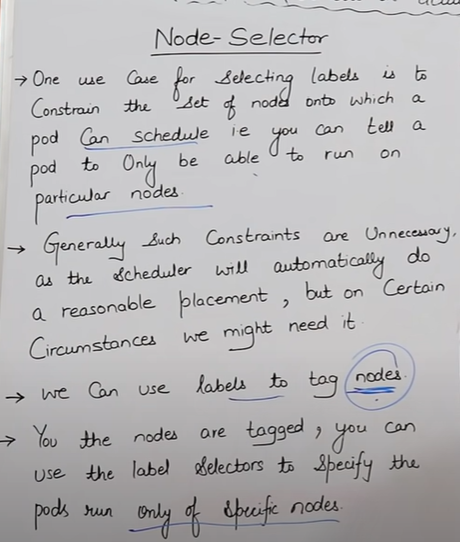 Node-Selector
→ One use Case for Selecting labels is to
Constrain the set of nodes onto which a
pod Can schedule i.e you can tell a
pod to Only be able to run on
particular nodes.
→ Generally Such Constraints are Unnecessary,
as the Scheduler will automatically do
a reasonable placement, but on Certain
Circumstances we might need it.
→ we Can use labels to tag nodes.
→ You the nodes are tagged, you can
use the label Selectors to Specify the
pods run only of Specific nodes.